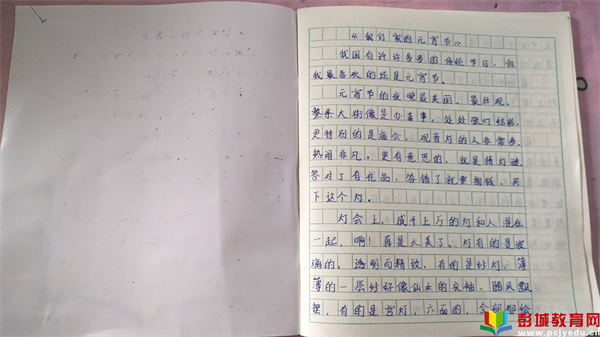 《我们家的元宵节》
我国有许许多多的传统节日，但
我最喜欢的还是元宵节。
元宵节的夜晚最美丽，最壮观。
整条大街像是办喜事，处处张灯结彩，
更特别的是庙会，观育灯的人非常多，
热闹非凡。更有意思的，就是猜灯谜
答对了有礼品，答错了就要掏钱，买
下这个灯。
灯会上，成千上万的灯和人混在
一起，啊！真是太美了。灯有的是玻
璃的，透明而精致，有的是纱灯，薄
薄的一层纱好像仙女的衣袖，随风飘
摆，有的是宫灯，六面的，全都都绘
彭城教育网
www.pcjyedu.cn